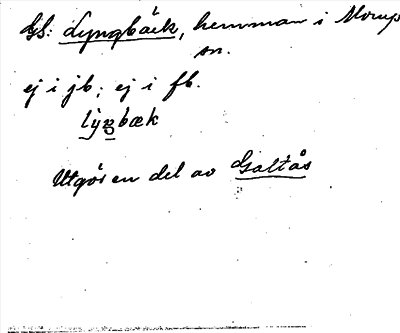 GS: Lyngbäck, hemman i Morups
sn.
ej i jb; ej i fb.
lyŋbæk
Utgör en del av Galtås